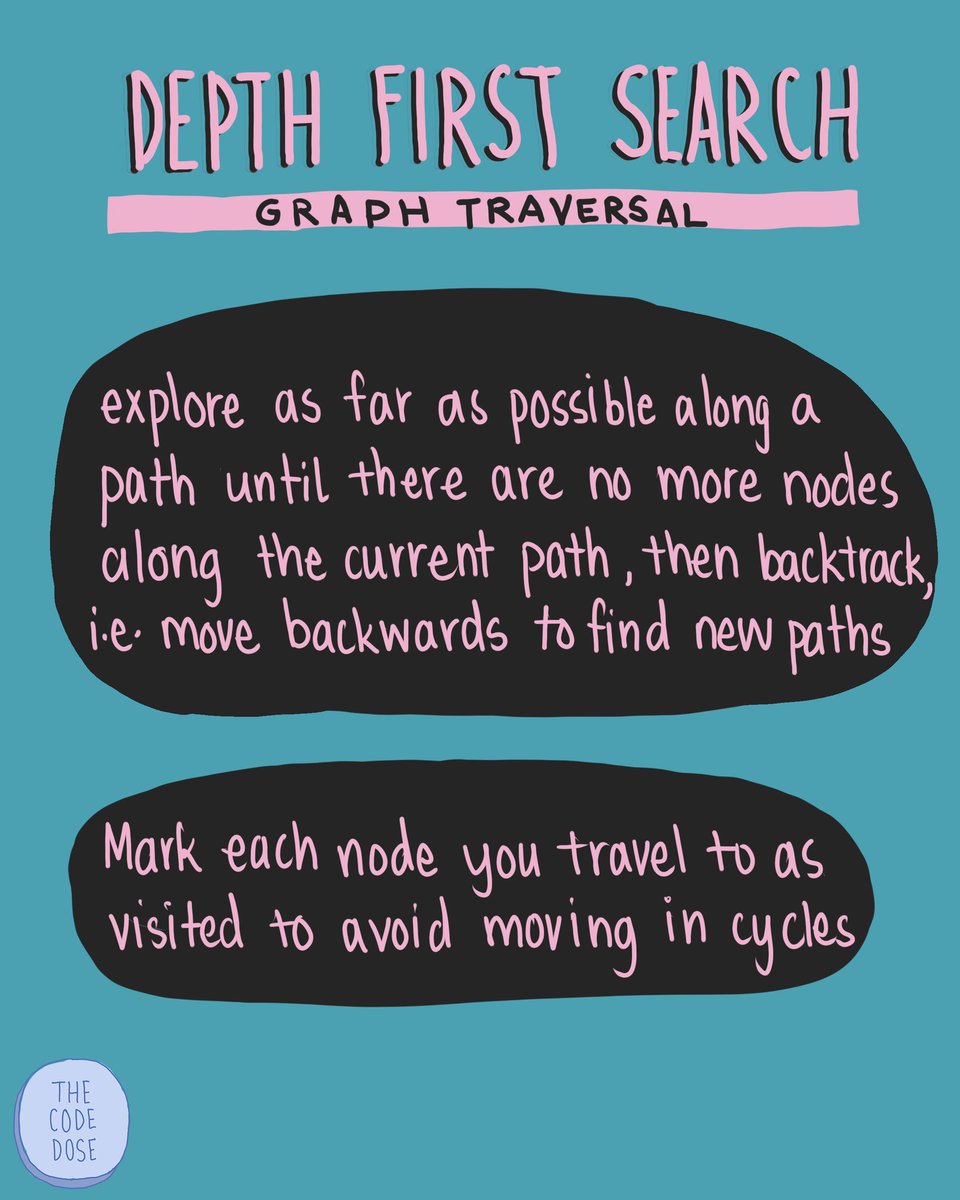 DEPTH FIRST SEARCH
GRAPH TRAVERSAL
explore as far as possible along a
path until there are no more nodes
along the current path, then backtrack,
i.e. move backwards to find new paths
Mark each node you travel to as
visited to avoid moving in cycles
THE
CODE
DOSE